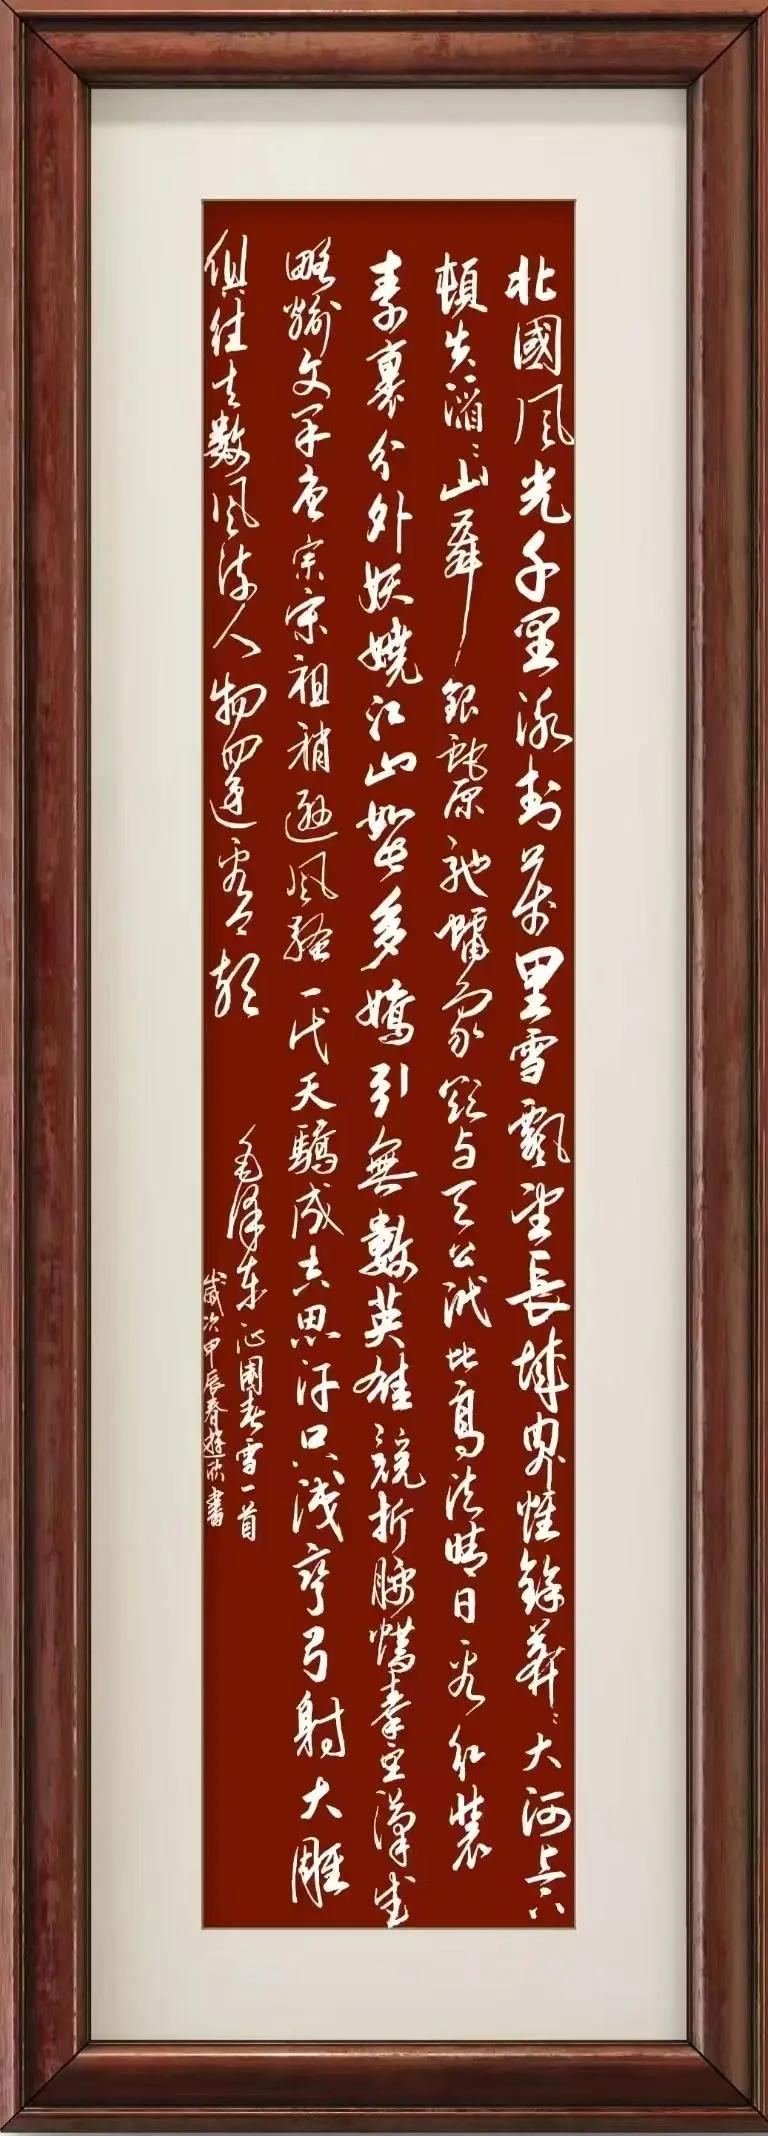 北國风光千里冰封萬里雪飄望長城内外惟餘莽〻大河上下
頓失滔〻山舞銀蛇原馳蠟象欲与天公試比高須晴日看红裝
素裹分外妖嬈江山如此多嬌引無數英雄競折腰惜秦皇漢武
略輸文采唐宗宋祖稍遜风騷一代天驕成吉思汗只識彎弓射大雕
俱往矣数风流人物還看今朝
毛澤东沁園春雪一首
歲次甲辰春游欣書